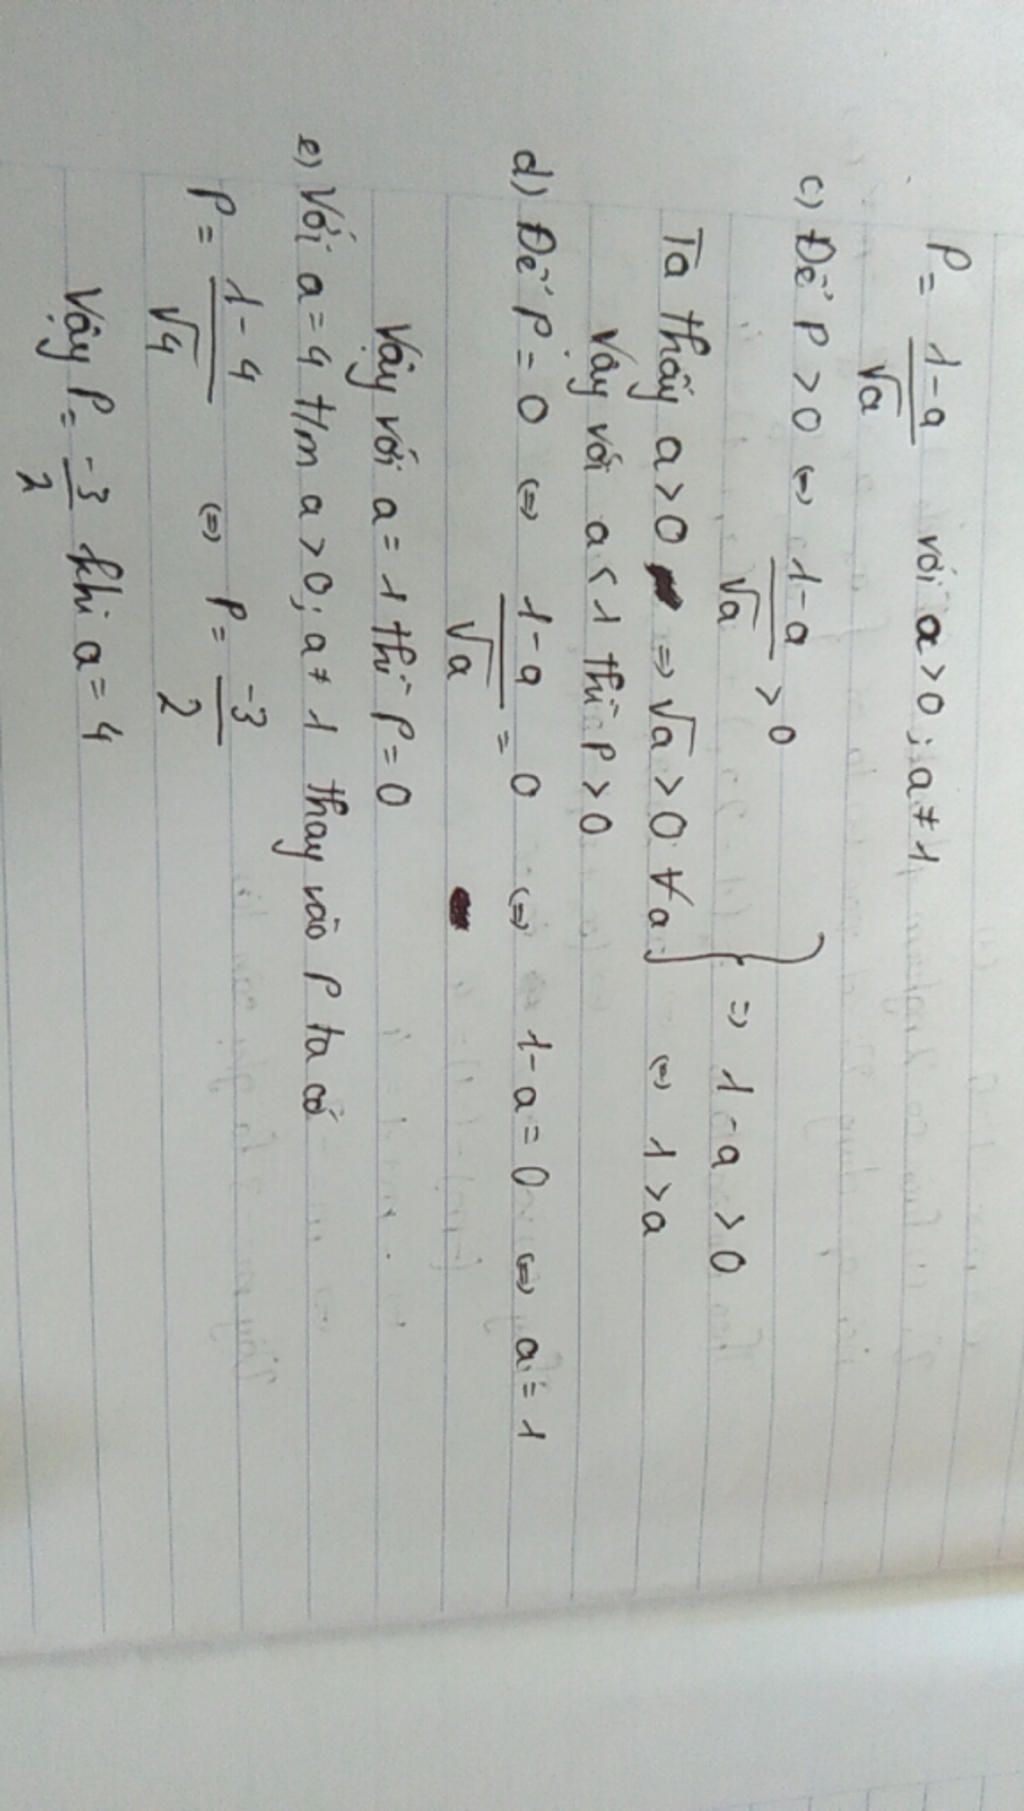 P = 1-a / √a với a > 0 ; a ≠ 1
c) Để P > 0 ⇔ 1-a / √a > 0
Ta thấy a > 0 ⇒ √a > 0 ∀a } ⇒ 1 - a > 0
⇔ 1 > a
Vậy với a < 1 thì P > 0
d) Để P = 0 ⇔ 1-a / √a = 0 ⇔ 1-a = 0 ⇔ a = 1
Vậy với a = 1 thì P = 0
e) Với a = 4 t/m a > 0 ; a ≠ 1 thay vào P ta có
P = 1-4 / √4 ⇔ P = -3 / 2
Vậy P = -3 / 2 khi a = 4